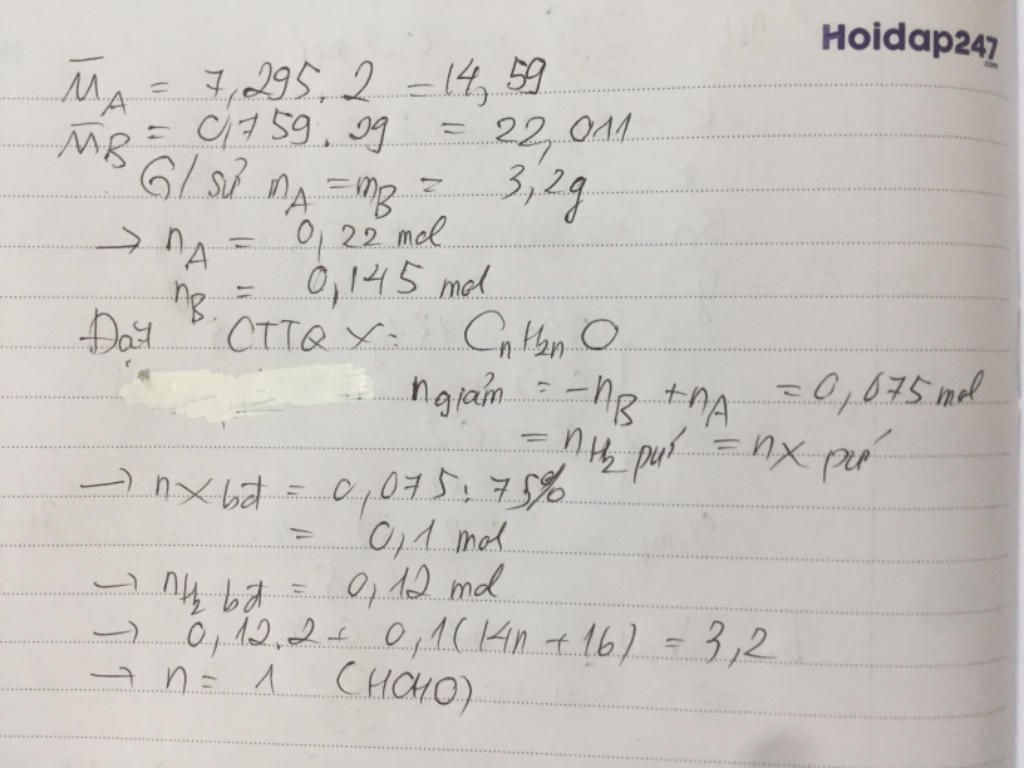 Hoidap247
.com
M̄A = 7,295.2 = 14,59
M̄B = 0,759.29 = 22,011
G/sử mA = mB = 3,2g
→ nA = 0,22 mol
nB = 0,145 mol
Đặt CTTQ X: CnH2nO
n giảm = -nB + nA = 0,075 mol
= nH2 pứ = nX pứ
→ nX bđ = 0,075 : 75%
= 0,1 mol
→ nH2 bđ = 0,12 mol
→ 0,12.2 + 0,1(14n + 16) = 3,2
→ n = 1 (HCHO)